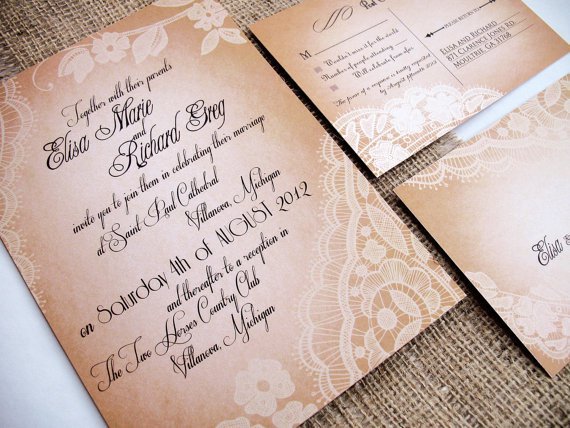 Together with their parents
Elisa Marie
and
Richard Greg
invite you to join them in celebrating their marriage
at Saint Paul Cathedral
Villanova, Michigan
on Saturday 4th of AUGUST 2012
and thereafter to a reception in
The Two Horses Country Club
Villanova, Michigan
M
Wouldn't miss it for the world
Number of people attending
Will celebrate from afar
The favor of a response is kindly requested
by August 2012
Post
PLEASE RETURN TO
ELISA AND RICHARD
871 CLARENCE JONES RD
MOULTRIE, GA 31768
Elisa